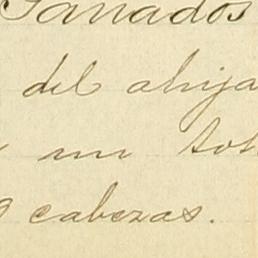 Ganados
del ahija
un tot
cabezas.